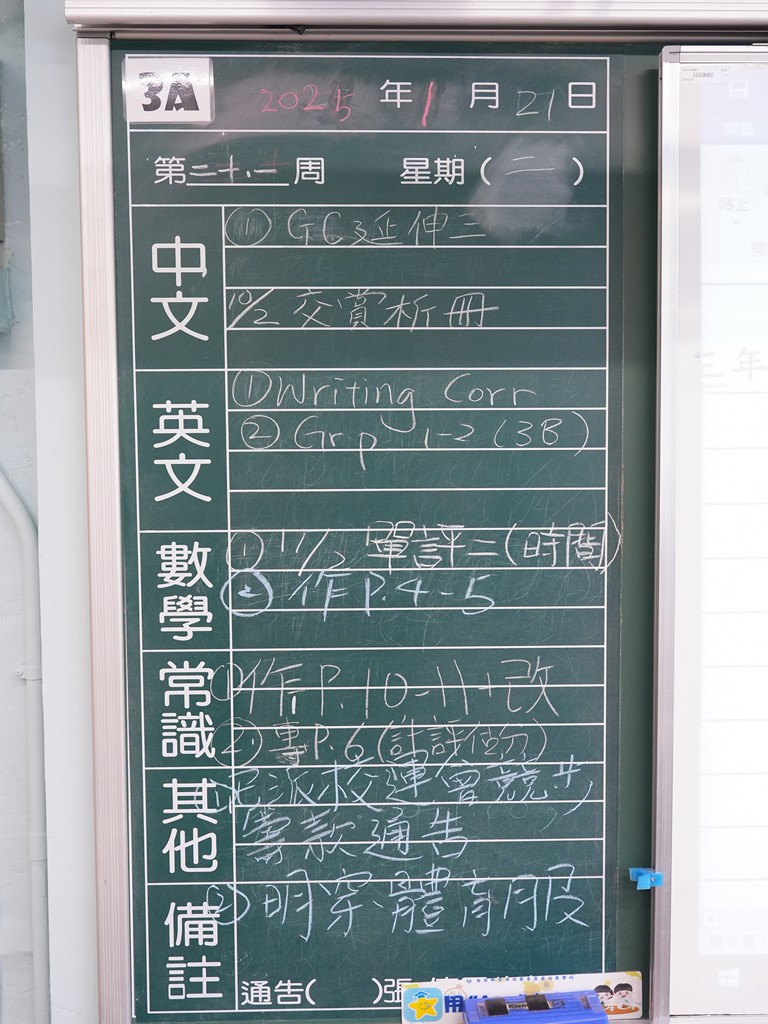 3A 2025年1月21日
第二十一周 星期(二)
中文
① GC延伸三
10/2 交賞析冊
英文
① Writing Corr
② Grp 1-2 (3B)
數學
① 11/2 單評二(時間)
② 作P.4-5
常識
① 作P.10-11+改
② 專P.6(計評估分)
其他
派校運會競步
籌款通告
備註
② 明穿體育服
通告( )張